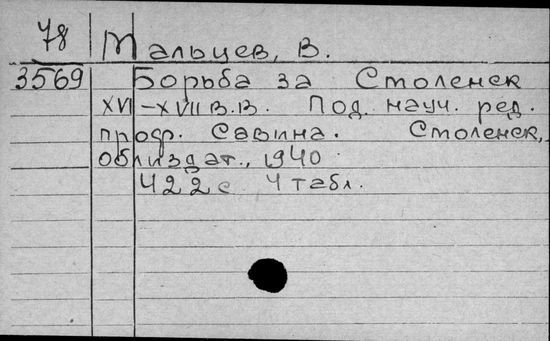 78 Мальцев, В.
3569 Борьба за Столенск
XVI-XVII в.в. Под. науч. ред.
проф. Савина. Столенск,
облиздат., 1940
422 с 4 табл.